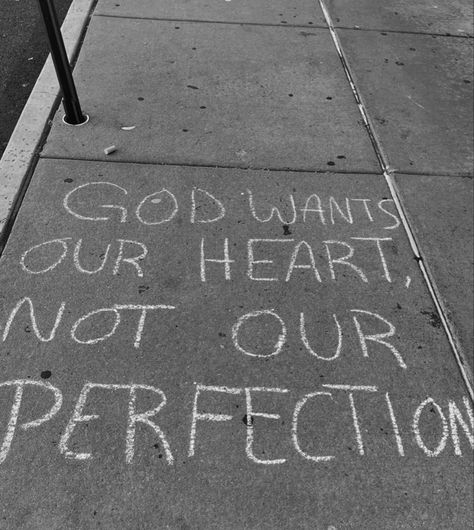 GOD WANTS
OUR HEART,
NOT OUR
PERFECTION